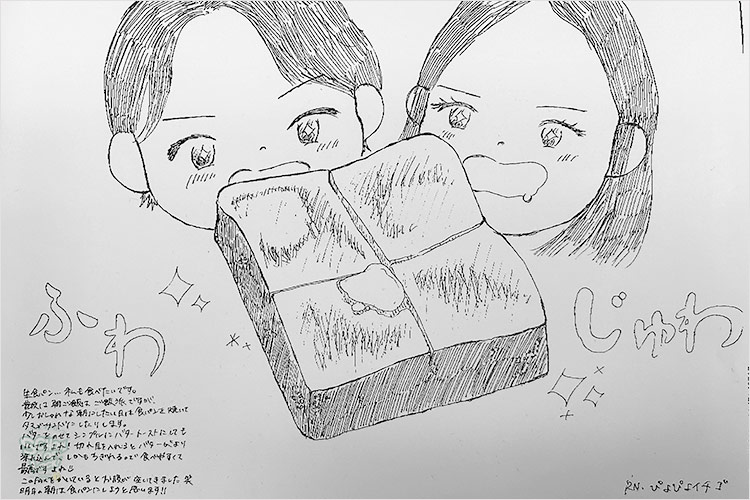 ふわ
じゅわ
生食パン…私も食べたいです。
普段は朝ご飯は ご飯派ですが、
少しおしゃれな朝にしたい日は食パンを焼いて
バターをのせてシンプルにバタートーストにしても
いいですよね！切れ目を入れるとバターがより
染み込んで、しかもちぎれるので食べやすくて
最高ですよね
このFAXをかいているとお腹が空いてきました 笑
明日の朝は食パンにしようと思います!!
R.N. ぴよぴよイチゴ